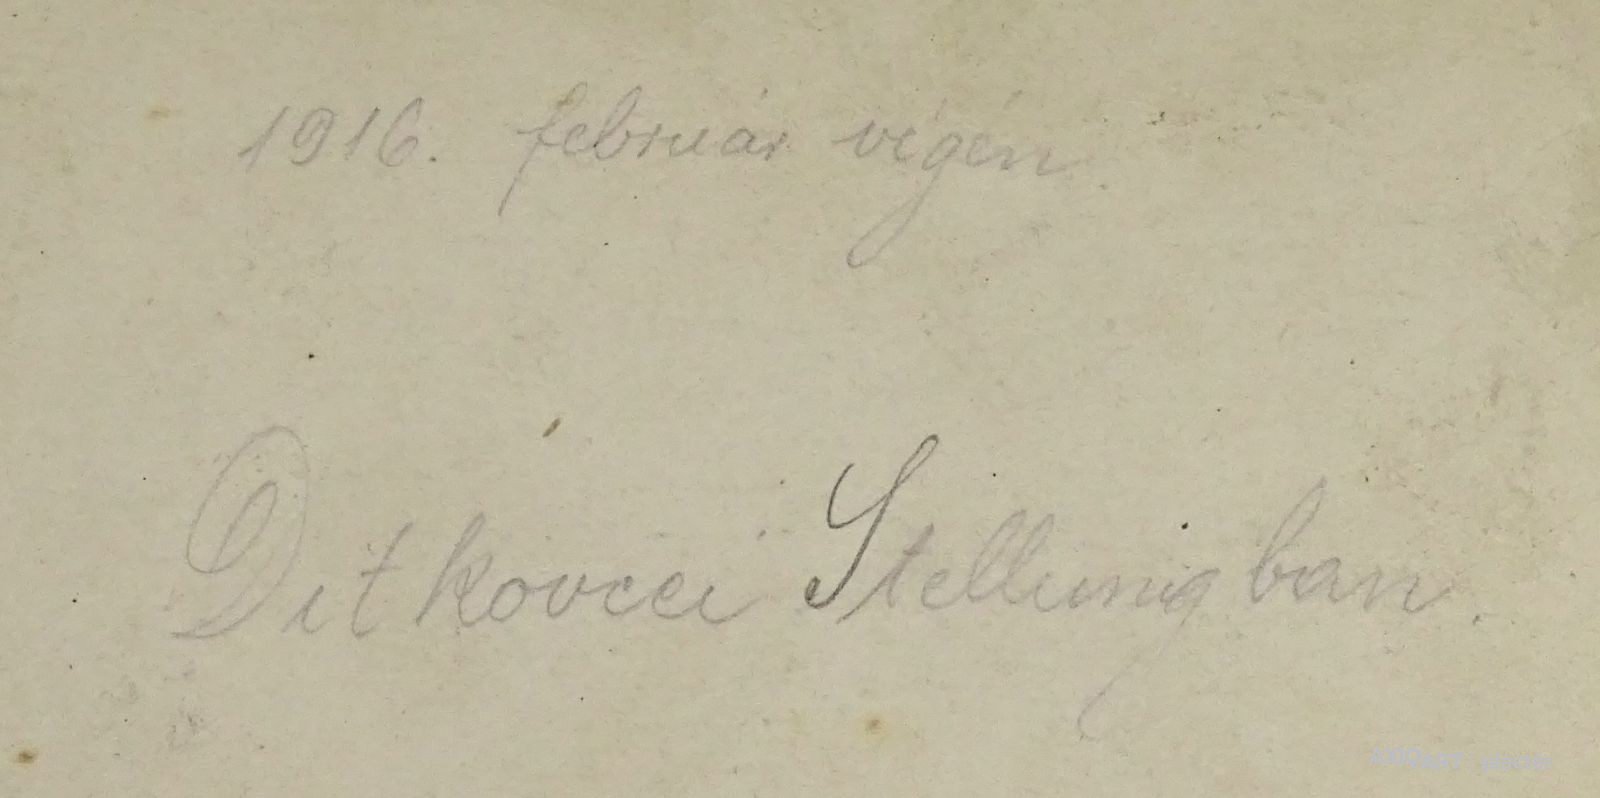 1916. február végén.
Ditkovcei Stellungban.